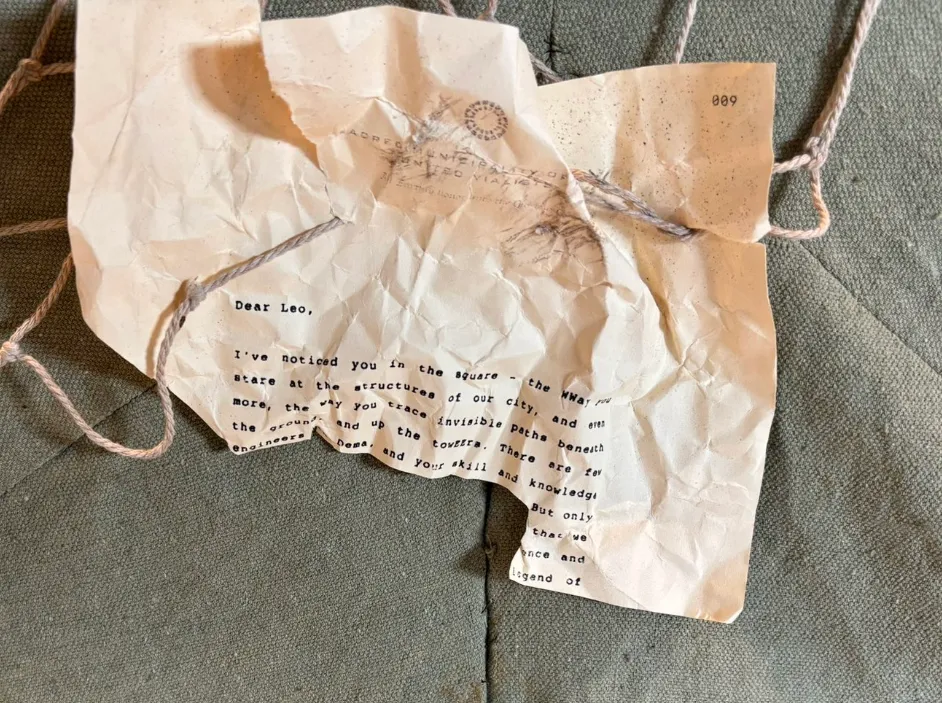 009
Dear Leo,
I've noticed you in the square - the WWay you
stare at the structures of our city, and even
more, the way you trace invisible paths beneath
the ground, and up the towEErs. There are few
engineers hema, and your skill and knowledge
But only
that we
once and
legend of